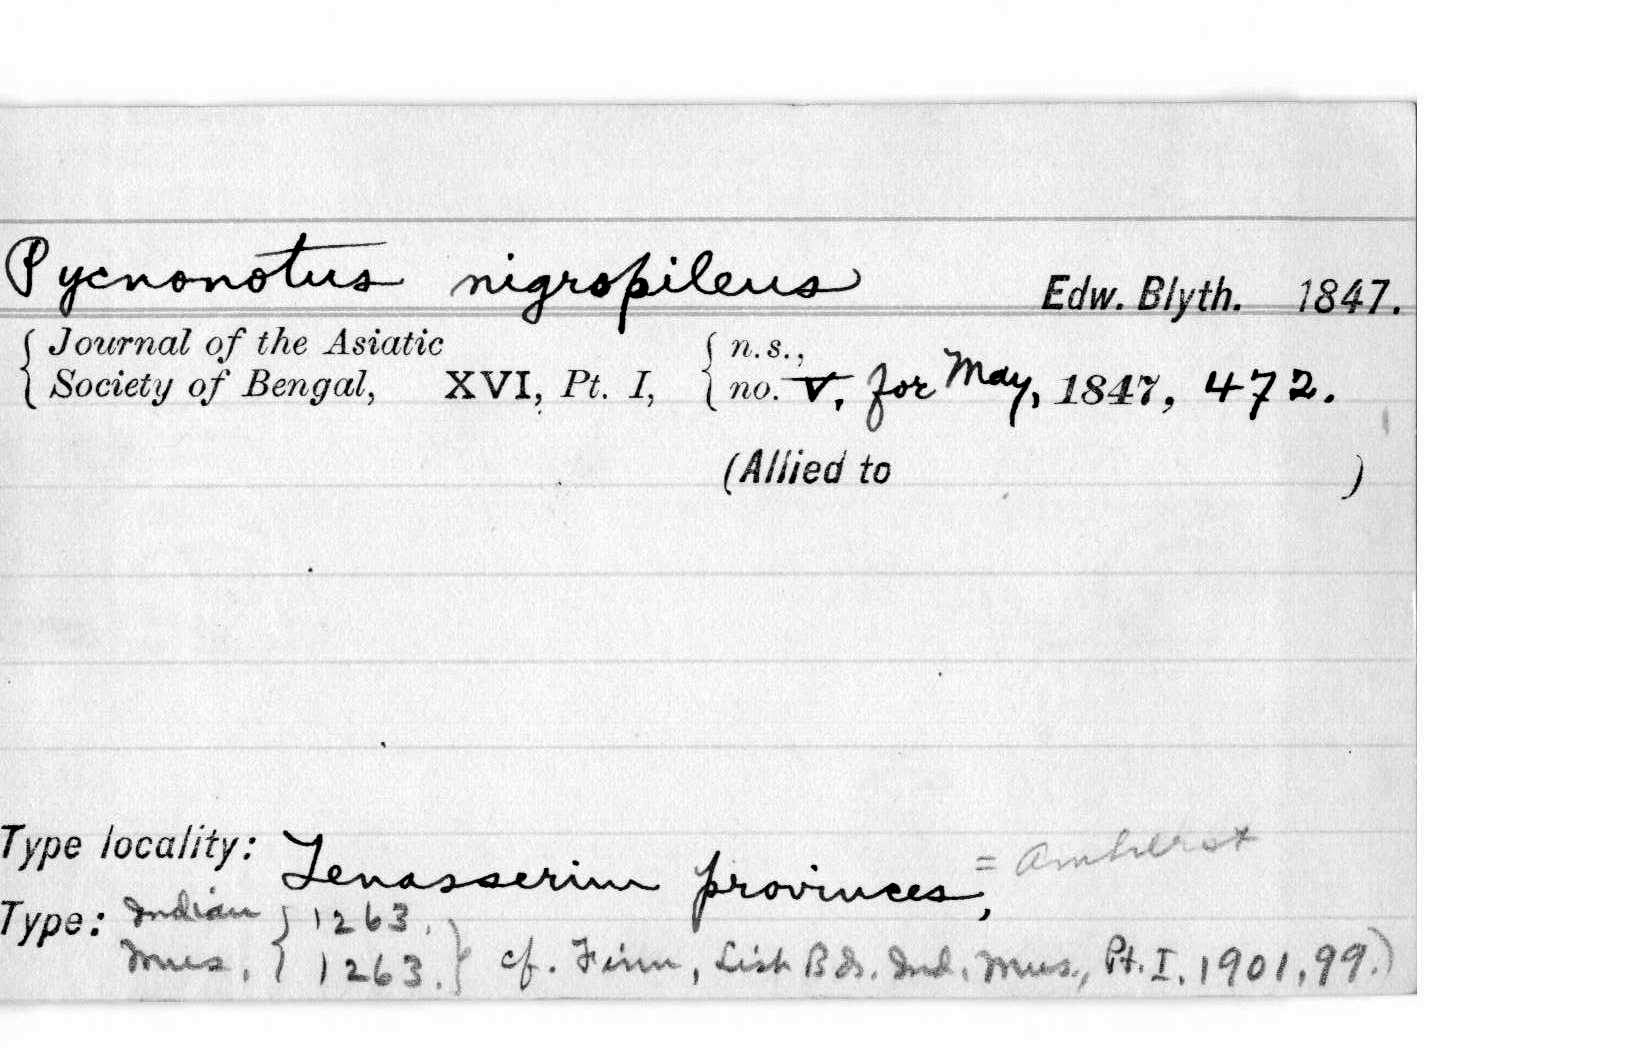 Pycnonotus nigropileus Edw. Blyth. 1847.
{ Journal of the Asiatic { n.s.,
Society of Bengal, XVI, Pt. I, no. V, for May, 1847, 472.
(Allied to )
Type locality: Tenasserim provinces, = Amherst
Type: Indian { 1263.
Mus. 1263. } cf. Finn, List Bds. Ind. Mus., Pt. I, 1901, 99.)